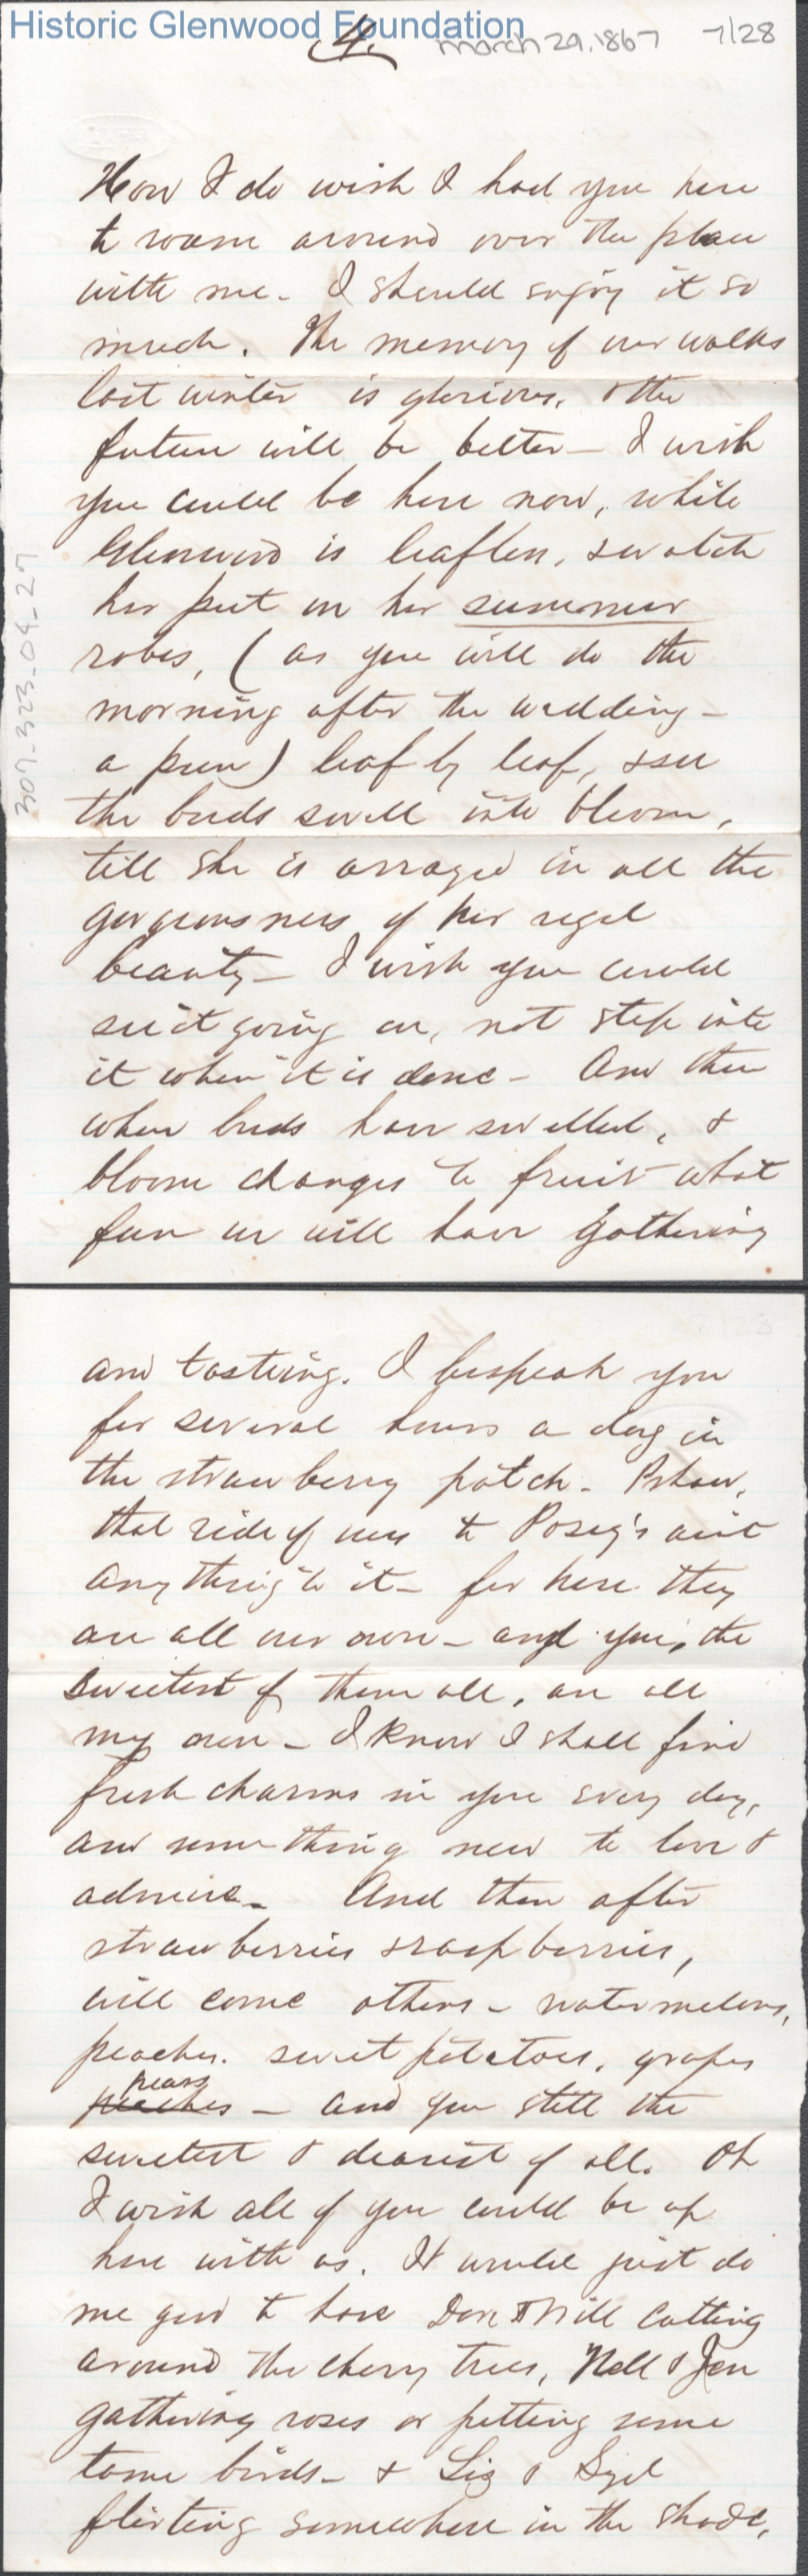 Historic Glenwood Foundation
4. march 29, 1867 7/28
307_323_04_27
How I do wish I had you here
to roam around over the place
with me. I should enjoy it so
much. The memory of our walks
last winter is glorious, & the
future will be better – I wish
you could be here now, while
Glenwood is leafless, & watch
her put on her summer
robes, ( as you will do the
morning after the wedding –
a pun ) leaf by leaf, & see
the buds swell into bloom,
till she is arrayed in all the
gorgeousness of her regal
beauty – I wish you could
see it going on, not step into
it when it is done – And then
when buds have swelled, &
bloom changes to fruit what
fun we will have gathering
and tasting. I bespeak you
for several hours a day in
the strawberry patch – Pshaw,
that ride of ours to Posey's aint
anything to it – for here they
are all our own – and you, the
sweetest of them all, are all
my own – I know I shall find
fresh charms in you every day,
and something new to love &
admire – And then after
strawberries & raspberries,
will come others – watermelons,
peaches. sweet potatoes, grapes
pears
peaches – and you still the
sweetest & dearest of all. Oh
I wish all of you could be up
here with us. It would just do
me good to have Dave & Will cutting
around the cherry trees, Nell & Jen
gathering roses or petting some
tame birds – & Liz & Syd
flirting somewhere in the shade,